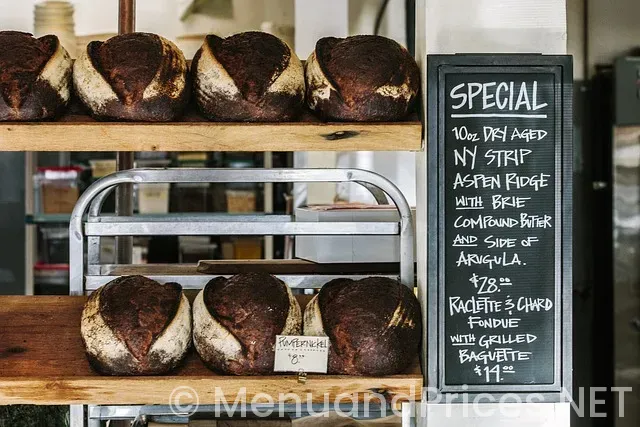 SPECIAL
10oz DRY AGED
NY STRIP
ASPEN RIDGE
WITH BRIE
COMPOUND BUTTER
AND SIDE OF
ARUGULA.
$28.00
RACLETTE & CHARD
FONDUE
WITH GRILLED
BAGUETTE
$14.00
PUMPERNICKEL
$8.00
© MenuandPrices.NET